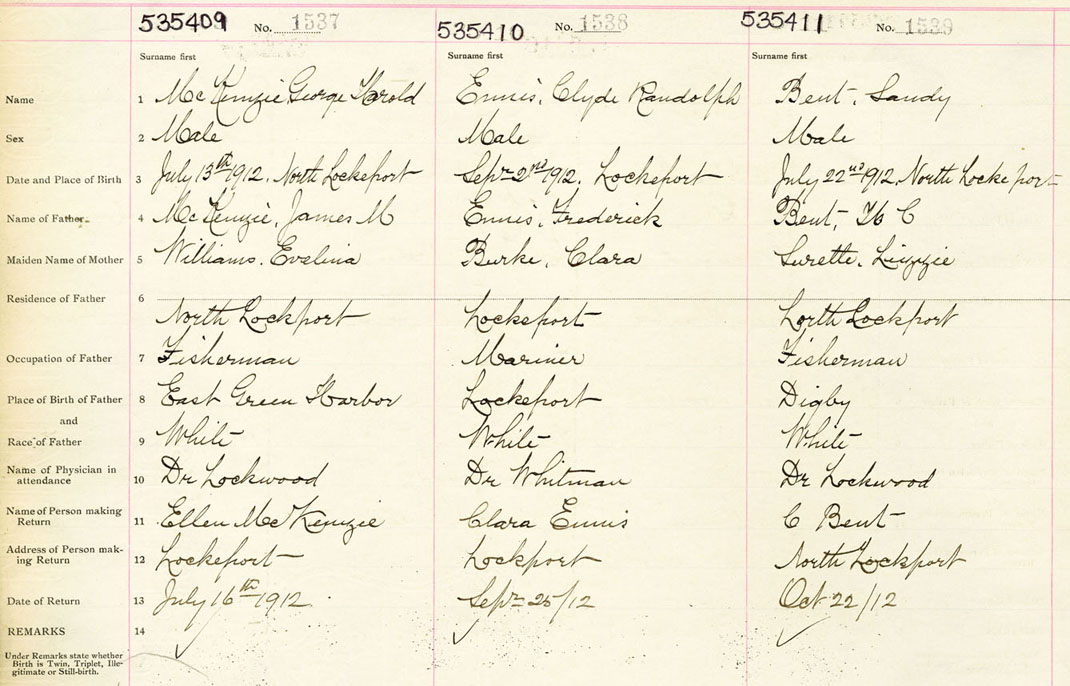 535409 No. 1537 535410 No. 1538 535411 No. 1539
Surname first Surname first Surname first
Name 1 McKenzie George Harold Ennis, Clyde Randolph Bent, Sandy
Sex 2 Male Male Male
Date and Place of Birth 3 July 13th 1912. North Lockeport Sepr 2nd 1912. Lockeport July 22nd 1912. North Lockeport
Name of Father 4 McKenzie, James M Ennis, Frederick Bent, H C
Maiden Name of Mother 5 Williams. Evelina Burke, Clara Surette, Lizzie
Residence of Father 6
North Lockport Lockeport North Lockport
Occupation of Father 7 Fisherman Mariner Fisherman
Place of Birth of Father 8 East Green Harbor Lockeport Digby
and
Race of Father 9 White White White
Name of Physician in
attendance 10 Dr Lockwood Dr Whitman Dr Lockwood
Name of Person making
Return 11 Ellen McKenzie Clara Ennis C Bent
Address of Person mak-
ing Return 12 Lockeport Lockport North Lockport
Date of Return 13 July 16th 1912. Sepr 25/12 Oct 22/12
REMARKS 14
Under Remarks state whether
Birth is Twin, Triplet, Ille-
gitimate or Still-birth.